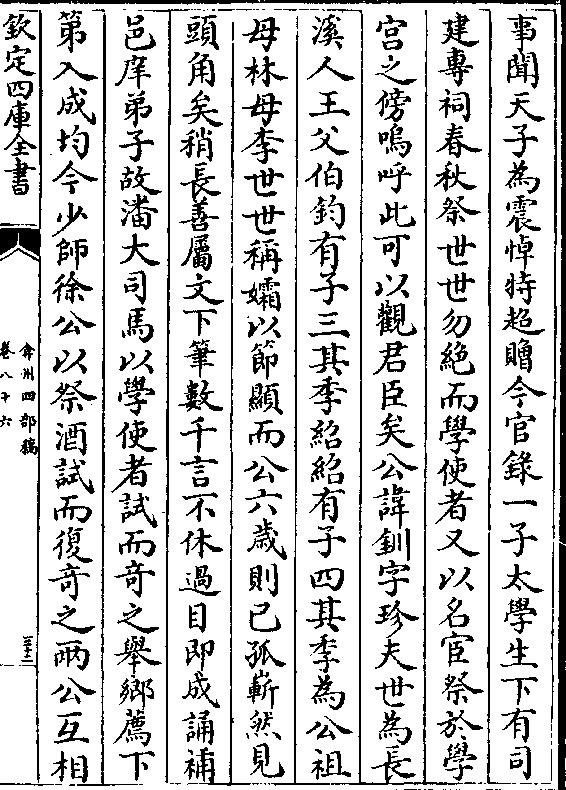 事聞天子為震悼特超贈今官錄一子太學生下有司
建專祠春秋祭世世勿絶而學使者又以名宦祭於學
宫之傍嗚呼此可以觀君臣矣公諱釧字珍夫世為長
溪人王父伯鈞有子三其季紹紹有子四其季為公祖
母林母李世世稱孀以節顯而公六歲則已孤嶄然見
頭角矣稍長善屬文下筆數千言不休過目即成誦補
邑庠弟子故潘大司馬以學使者試而奇之舉鄉薦下
第入成均今少師徐公以祭酒試而復竒之兩公互相
欽定四庫全書
弇州四部稿
卷八十六